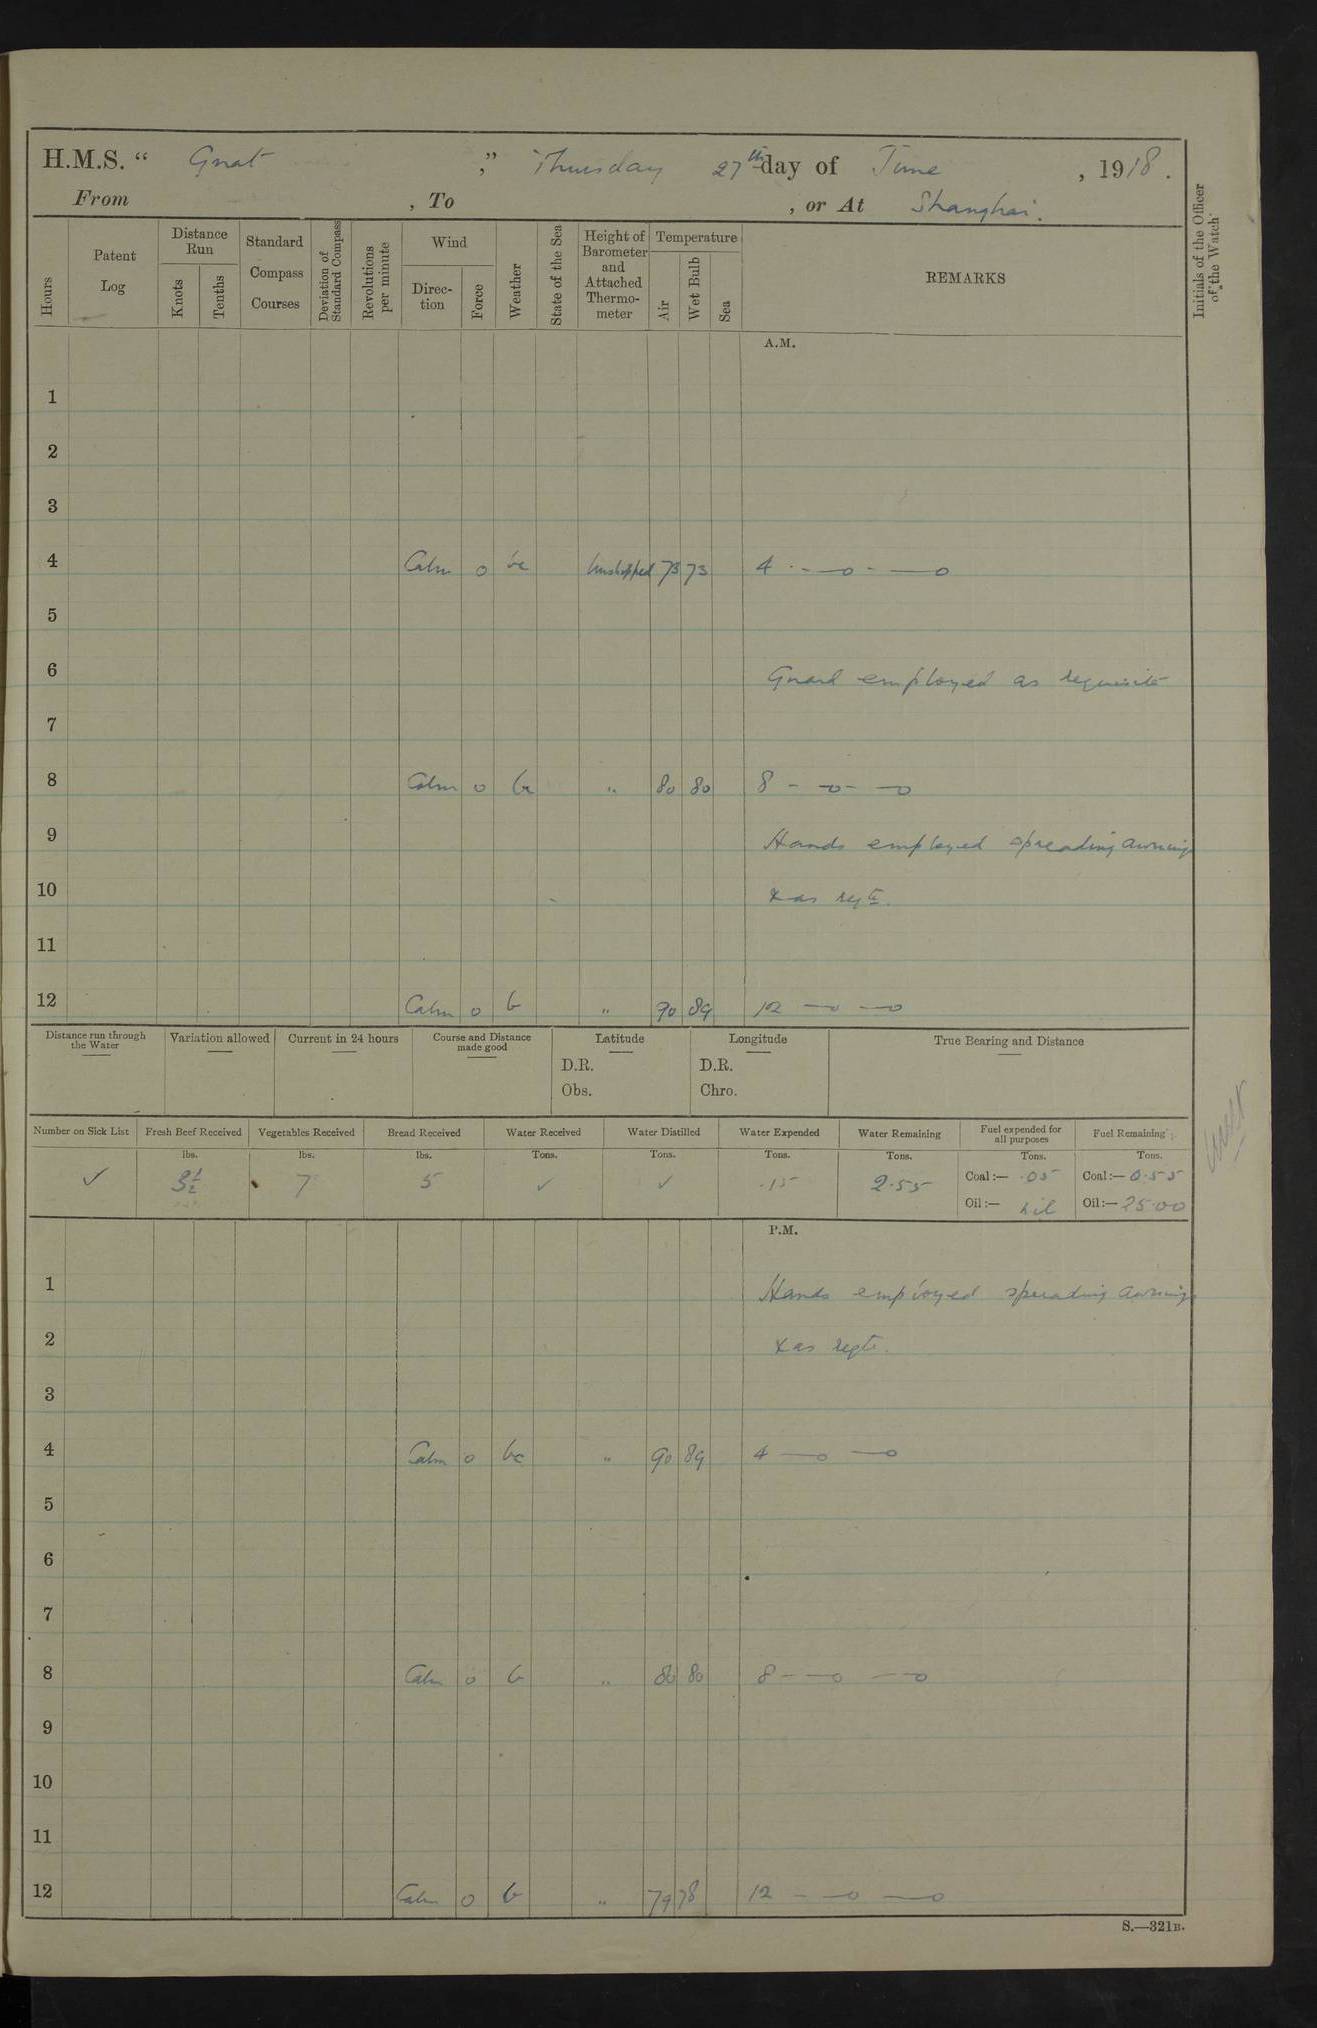 H.M.S. “ Gnat ” Thursday 27th day of June , 1918.
From , To , or At Shanghai.
Hours
Patent Log
Distance Run
Knots
Tenths
Standard Compass Courses
Deviation of Standard Compass
Revolutions per minute
Wind
Direc-tion
Force
Weather
State of the Sea
Height of Barometer and Attached Thermo-meter
Temperature
Air
Wet Bulb
Sea
REMARKS
Initials of the Officer of the Watch
A.M.
1
2
3
4 Calm 0 bc Unshipped 73 73 4 - —o - —o
5
6 Guard employed as requisite
7
8 Calm 0 bc " 80 80 8 - —o- —o
9 Hands employed spreading awnings
10 & as reqte.
11
12 Calm 0 b " 90 89 12 —o —o
Distance run through the Water
Variation allowed
Current in 24 hours
Course and Distance made good
Latitude
D.R.
Obs.
Longitude
D.R.
Chro.
True Bearing and Distance
Number on Sick List
✓
Fresh Beef Received
lbs.
3½
Vegetables Received
lbs.
7
Bread Received
lbs.
5
Water Received
Tons.
✓
Water Distilled
Tons.
✓
Water Expended
Tons.
.15
Water Remaining
Tons.
2.55
Fuel expended for all purposes
Tons.
Coal:— .05
Oil:— nil
Fuel Remaining
Tons.
Coal:— 0.55
Oil:— 25.00
P.M.
1 Hands employed spreading awnings
2 & as reqte.
3
4 Calm 0 bc " 90 89 4 —o —o
5
6
7
8 Calm 0 b " 80 80 8 - —o —o
9
10
11
12 Calm 0 b " 79 78 12 - —o —o
S.—321B.